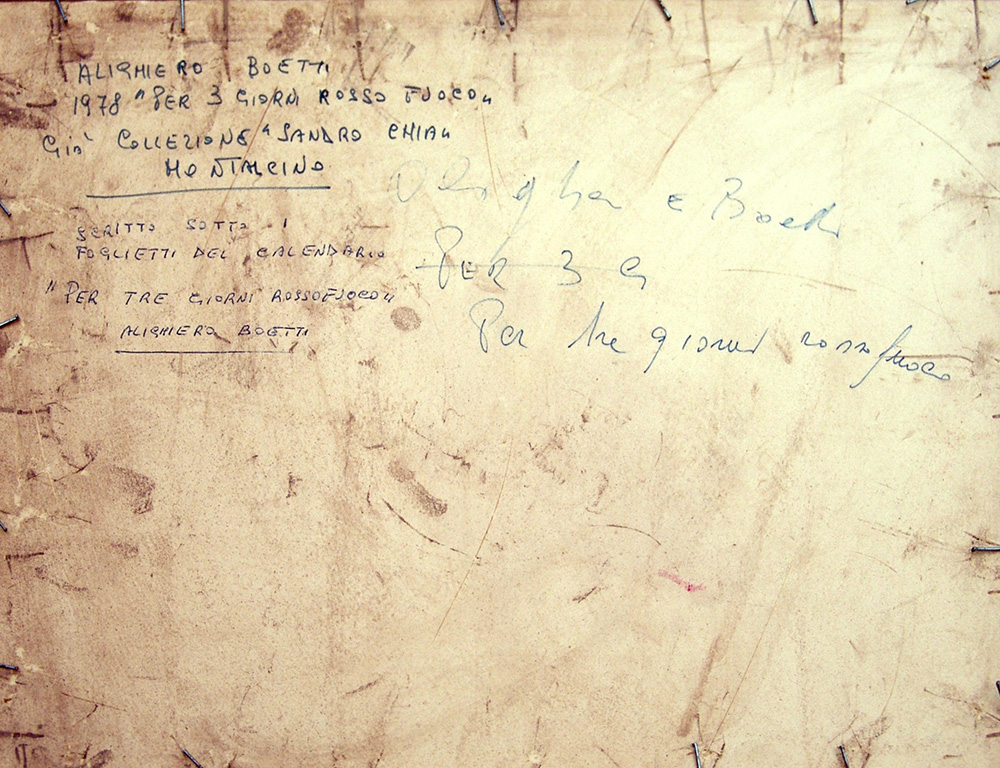 ALIGHIERO BOETTI
1978 "PER 3 GIORNI ROSSO FUOCO"
Già COLLEZIONE "SANDRO CHIA"
MONTALCINO
SCRITTO SOTTO I
FOGLIETTI DEL CALENDARIO
"PER TRE GIORNI ROSSOFUOCO"
ALIGHIERO BOETTI
Alighiero e Boetti
PER 3 G
Per tre giorni rosso fuoco